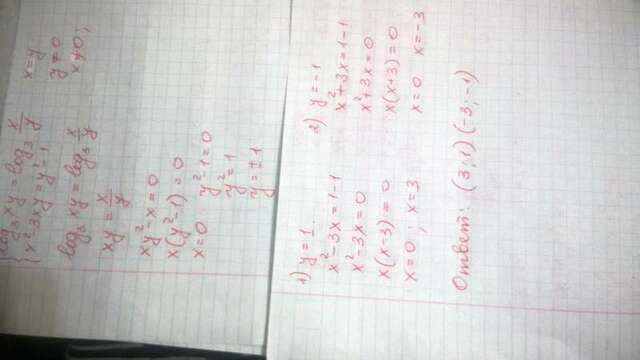 log₃ xy = log₃ x/y
x² - 3xy = y² - 1
y ≠ 0
x ≠ 0;
log₃ xy = log₃ x/y
xy = x/y
xy² - x = 0
x(y² - 1) = 0
x = 0    y² - 1 = 0
y² = 1
y = ±1
1) y = 1
x² - 3x = 1 - 1
x² - 3x = 0
x(x - 3) = 0
x = 0 ; x = 3
2) y = -1
x² + 3x = 1 - 1
x² + 3x = 0
x(x + 3) = 0
x = 0    x = -3
Ответ: (3; 1) (-3; -1)